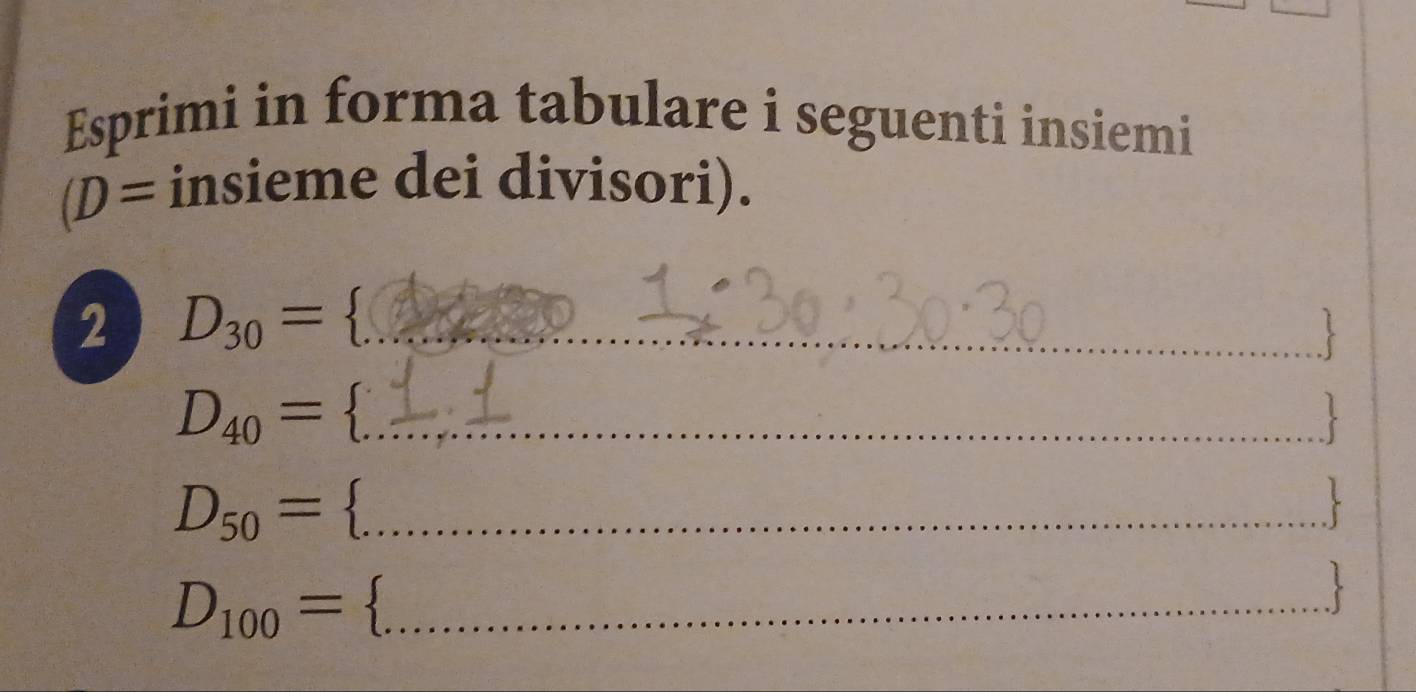 Esprimi in forma tabulare i seguenti insiemi
(D = insieme dei divisori).
2 D30 = {........ 1 : 30 : 30 . 30 ........}
D40 = {.... 1 . 1 ........}
D50 = {................}
D100 = {................}